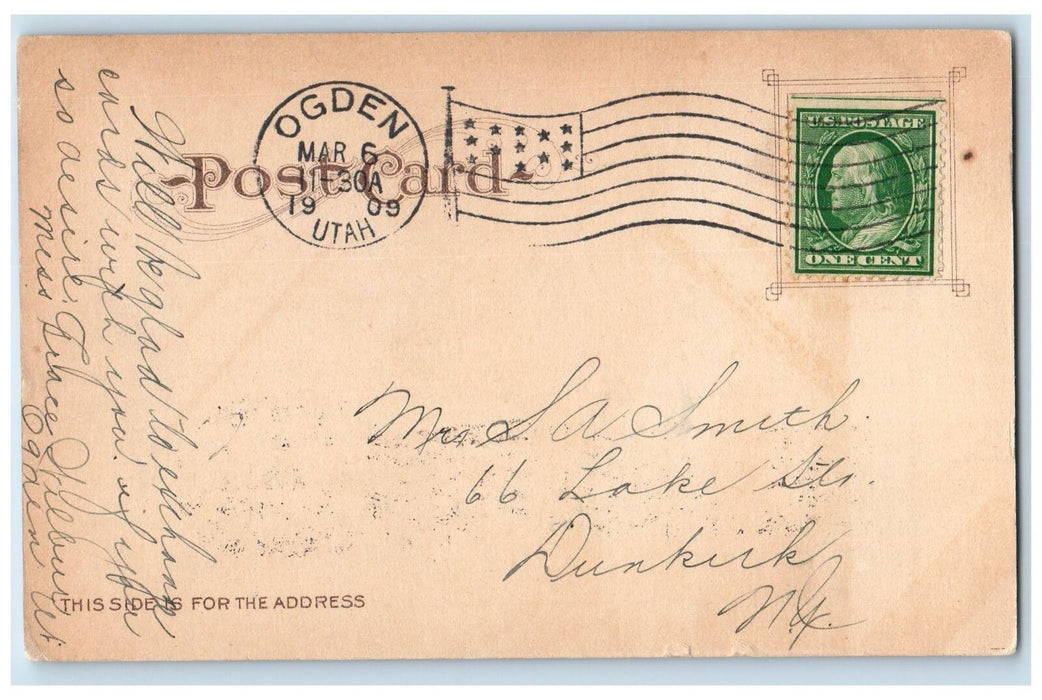 Post Card
OGDEN
MAR 6
11:30A
1909
UTAH
U.S. POSTAGE
ONE CENT
Mrs. S A Smith
66 Lake Str.
Dunkirk
N.Y.
Will be glad to exchange
cards with you, if you
so desire,
Miss Wilbur
Ogden Ut
THIS SIDE IS FOR THE ADDRESS